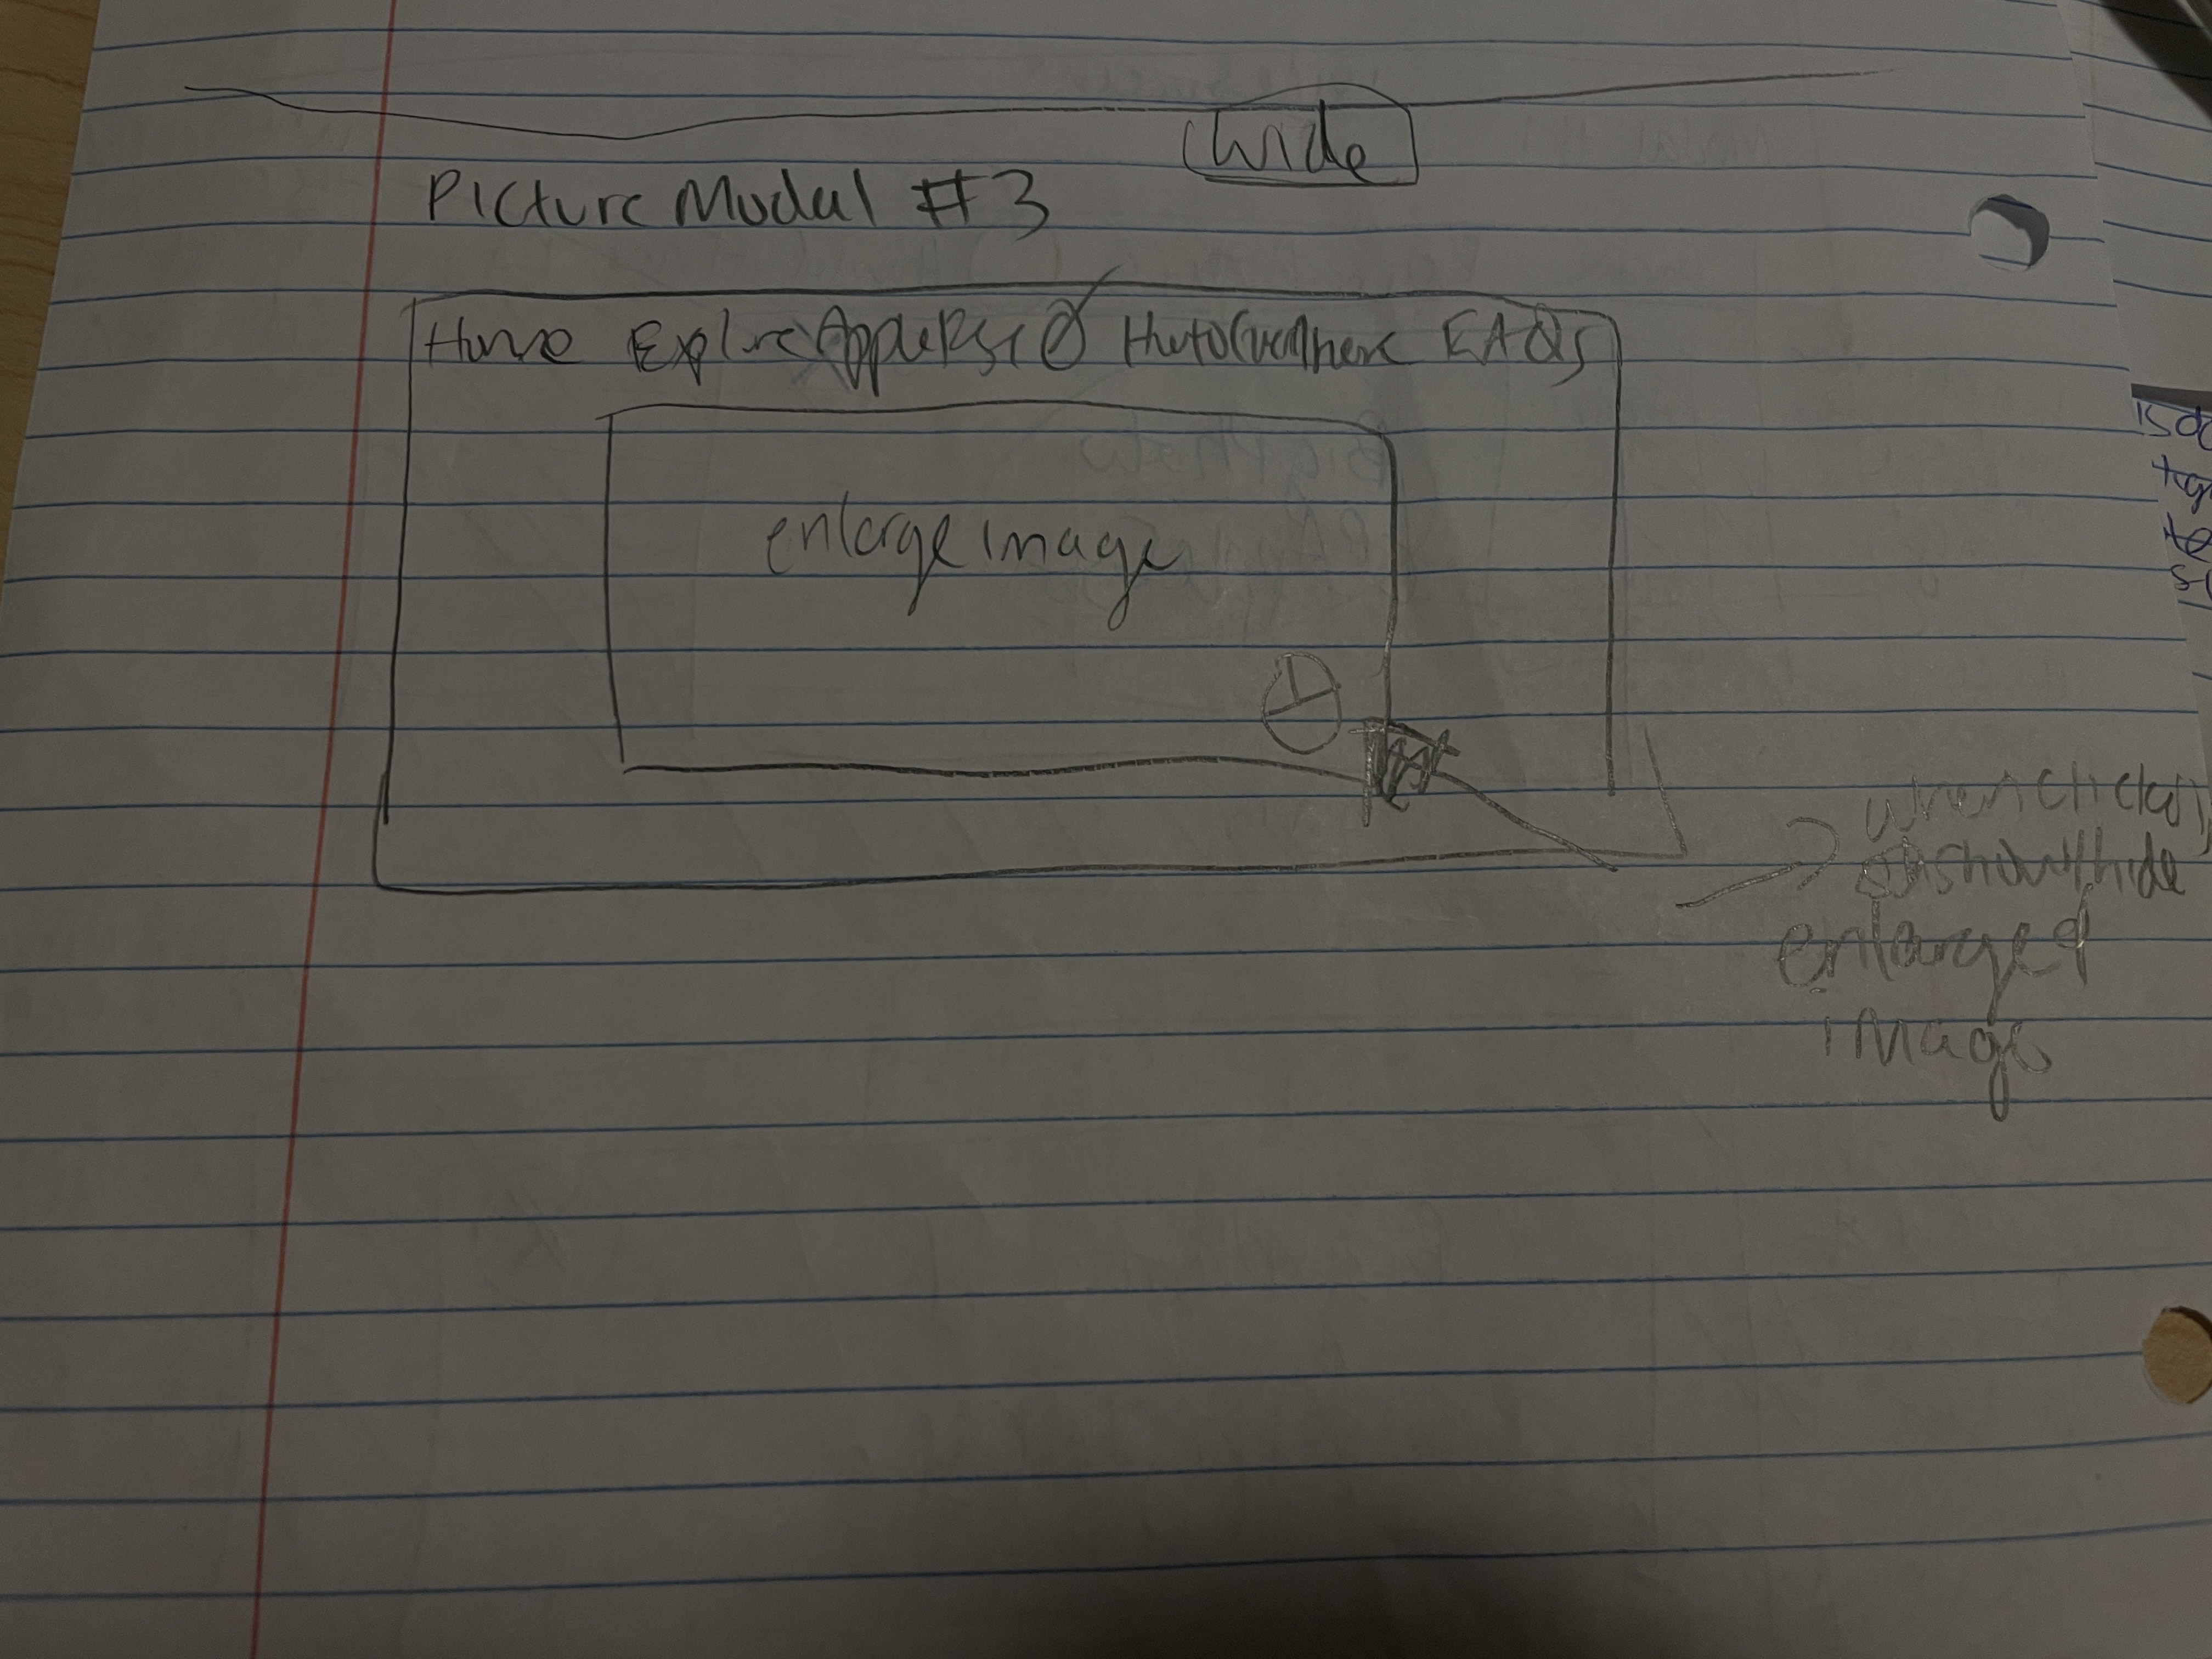 wide
Picture Modal #3
Home Explore Apple Rsr How to Get there FAQs
enlarge image
when clicked
show/hide
enlarged
image